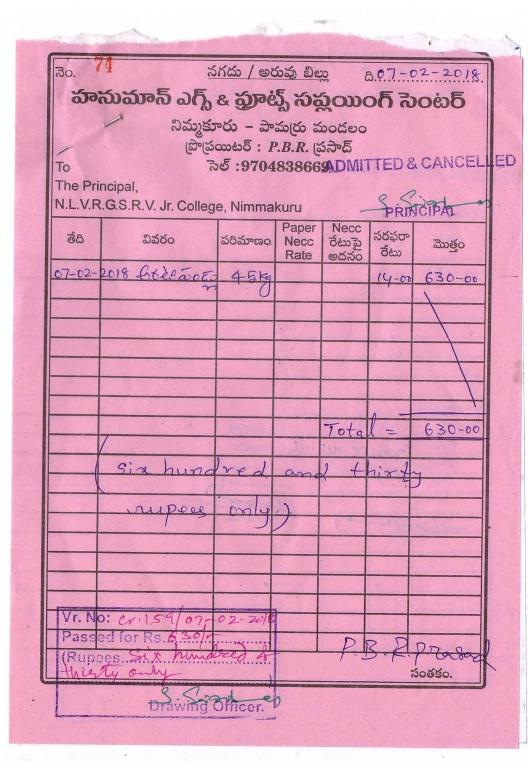 నెం. 74 నగదు / అరువు బిల్లు ది.07-02-2018
హనుమాన్ ఎగ్స్ & ఫ్రూట్స్ సప్లయింగ్ సెంటర్
నిమ్మకూరు - పామర్రు మండలం
ప్రొప్రయిటర్ : P.B.R. ప్రసాద్
To సెల్ :9704838669 ADMITTED & CANCELLED
The Principal,
N.L.V.R.G.S.R.V. Jr. College, Nimmakuru PRINCIPAL
తేది వివరం పరిమాణం Paper Necc Rate Necc రేటుపై అదనం సరఫరా రేటు మొత్తం
07-02-2018 అరటిపండ్లు 45kg 14-00 630-00
Total = 630-00
(six hundred and thirty
rupees only)
Vr. No: Cr.159/07-02-2018
Passed for Rs. 630/-
(Rupees Six hundred &
thirty only
P.B.R.Prasad
సంతకం.
Drawing Officer.